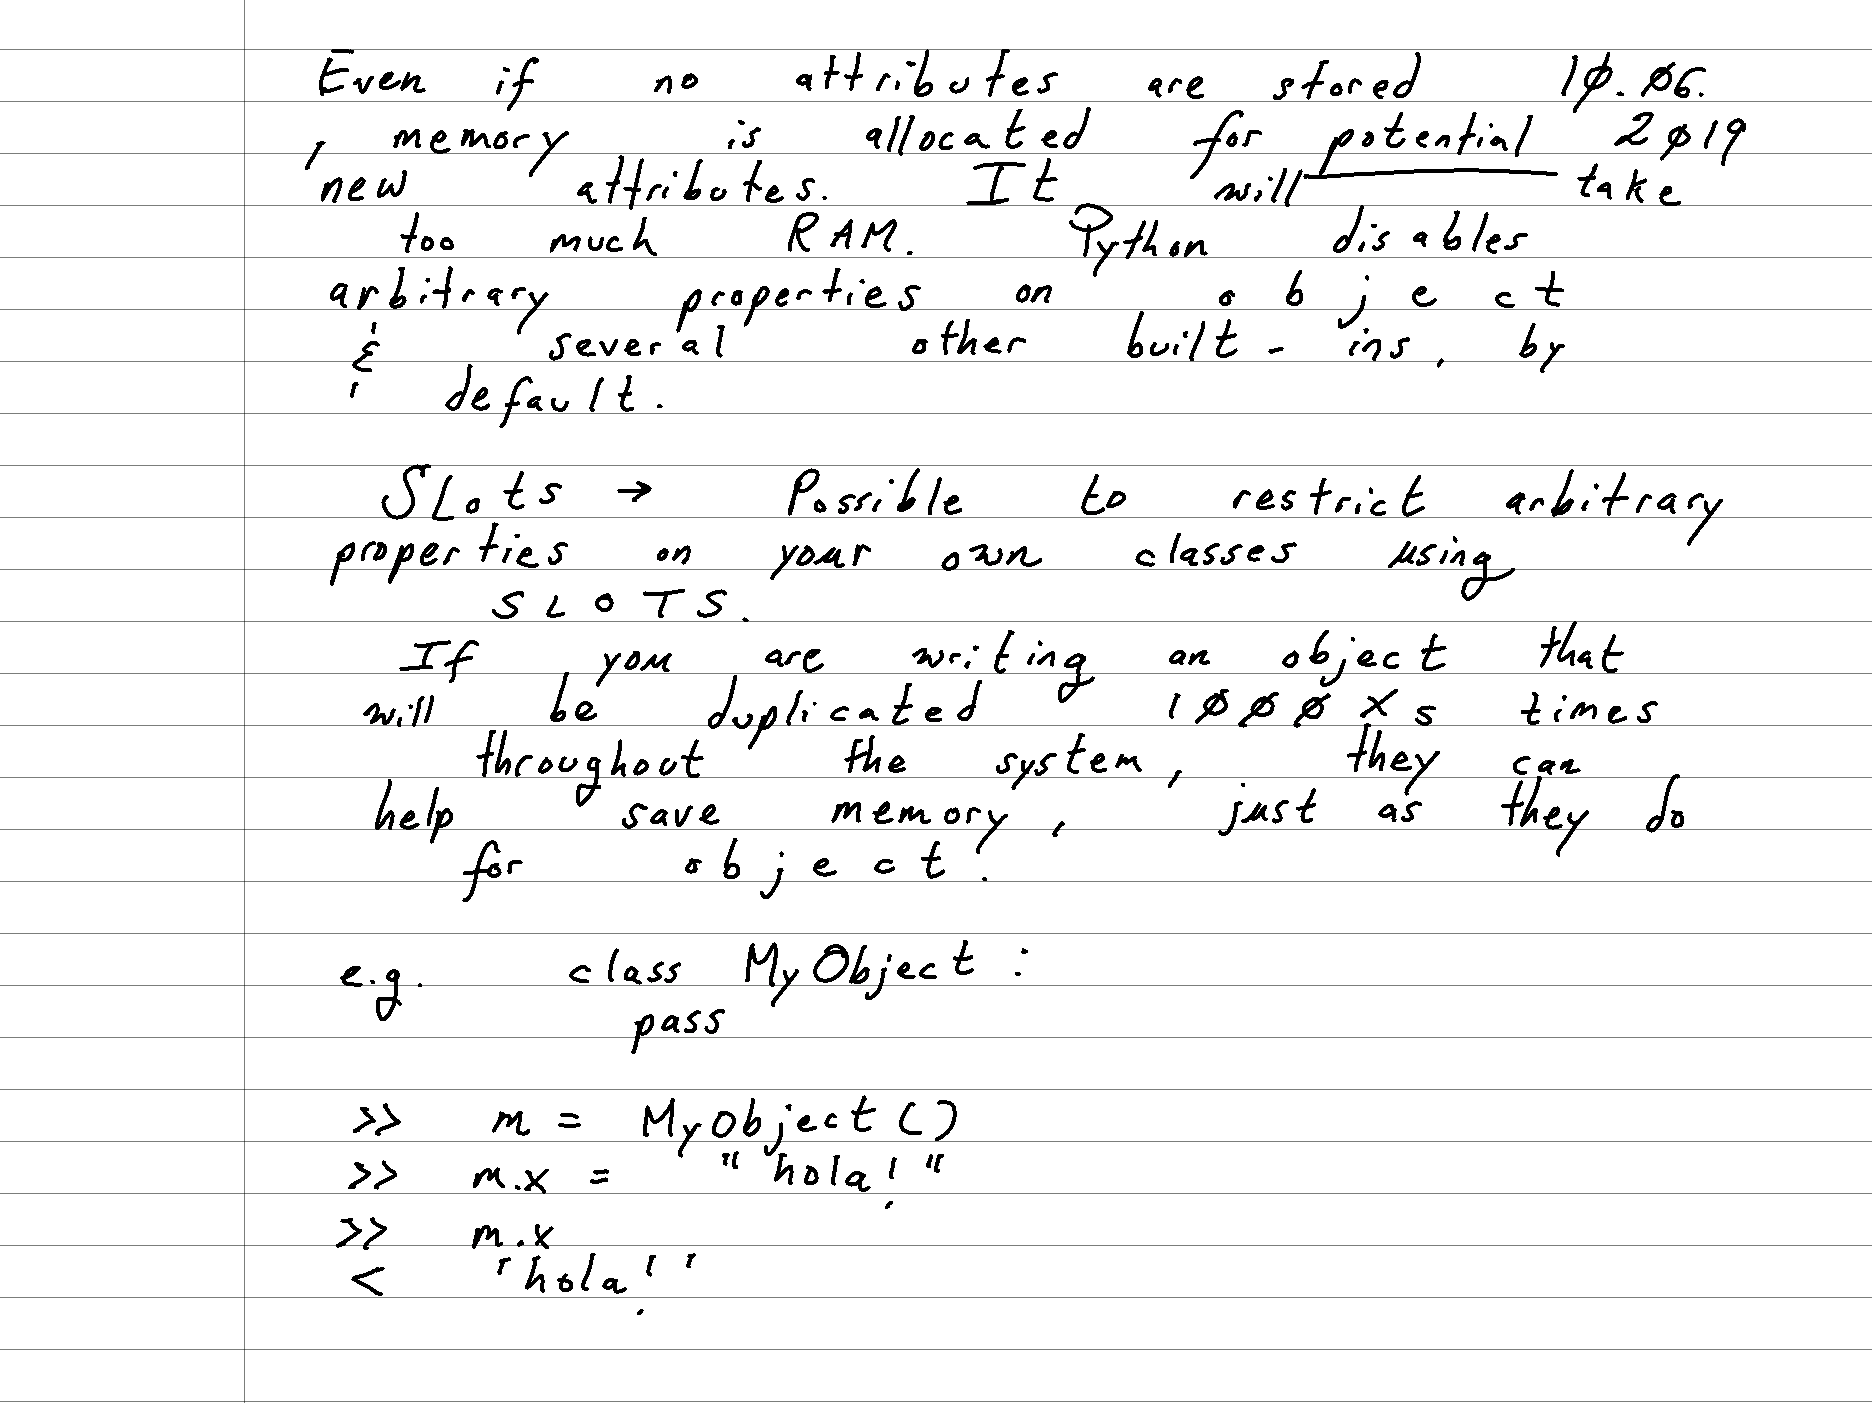 Even if no attributes are stored 10.06.
, memory is allocated for potential 2019
new attributes. It will take
too much RAM. Python disables
arbitrary properties on object
& several other built-ins, by
default.
SLots → Possible to restrict arbitrary
properties on your own classes using
SLOTS.
If you are writing an object that
will be duplicated 1000Xs times
throughout the system, they can
help save memory, just as they do
for object.
e.g. class MyObject:
pass
>> m = MyObject()
>> m.x = "hola!"
>> m.x
< 'hola!'